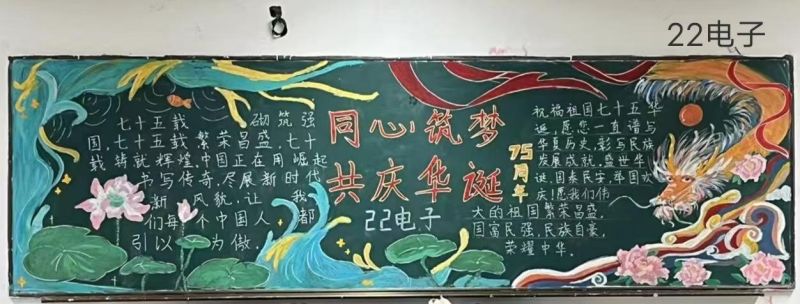 22电子
七十五载 砌筑强
国,七十五载繁荣昌盛,七十
载铸就辉煌,中国正在用崛起
书写传奇,尽展新时代
新风貌,让我
们每个中国人都
引以为傲.
同心筑梦
共庆华诞
22电子
75周年
祝福祖国七十五华
诞,愿您一直谱写
华夏历史,彰写民族
发展成就,盛世华
诞,国泰民安,举国欢
庆!愿我们伟
大的祖国繁荣昌盛.
国富民强.民族自豪,
荣耀中华.